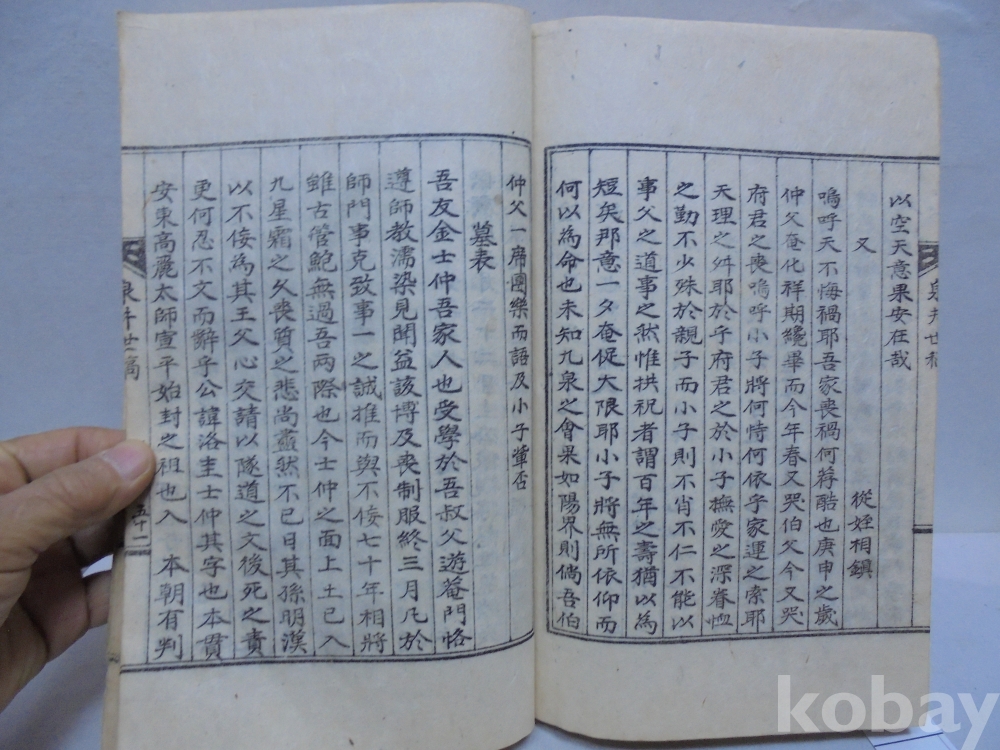 以空天意果安在哉
又 從姪相鎭
嗚呼天不悔禍耶吾家喪禍何荐酷也庚申之歲
仲父奄化祥期纔畢而今年春又哭伯父今又哭
府君之喪嗚呼小子將何恃何依乎家運之索耶
天理之舛耶於乎府君之於小子撫愛之深眷恤
之勤不少殊於親子而小子則不肖不仁不能以
事父之道事之然惟拱祝者謂百年之壽猶以為
短矣那意一夕奄促大限耶小子將無所依仰而
何以為命也未知九泉之會果如陽界則倘吾伯
仲父一席團樂而語及小子輩否
墓表
吾友金士仲吾家人也受學於吾叔父遊菴門恪
遵師教濡染見聞益該博及喪制服終三月凡於
師門事克致事一之誠推而與不侫七十年相將
雖古管鮑無過吾兩際也今士仲之面上土已入
九星霜之久喪質之悲尚衋然不已日其孫明漢
以不侫為其王父心交請以隧道之文後死之責
更何忍不文而辭乎公諱洛圭士仲其字也本貫
安東高麗太師宣平始封之祖也入 本朝有判
世稿
五十二
kobay